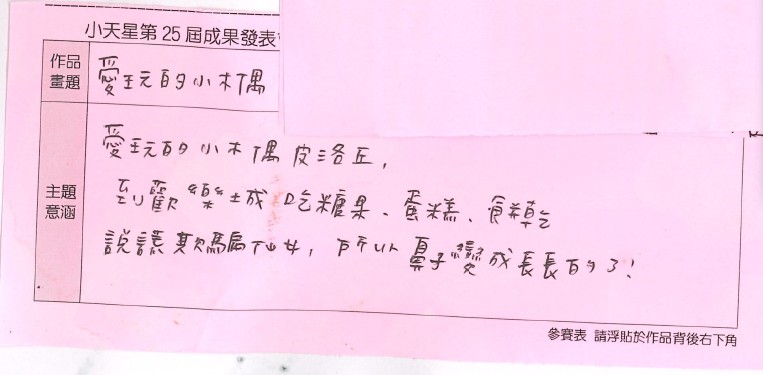 小天星第25屆成果發表
作品畫題
愛玩的小木偶
主題意涵
愛玩的小木偶皮洛丘,
到歡樂城吃糖果、蛋糕、餅乾
說謊欺騙仙女,所以鼻子變成長長的了!
參賽表 請浮貼於作品背後右下角